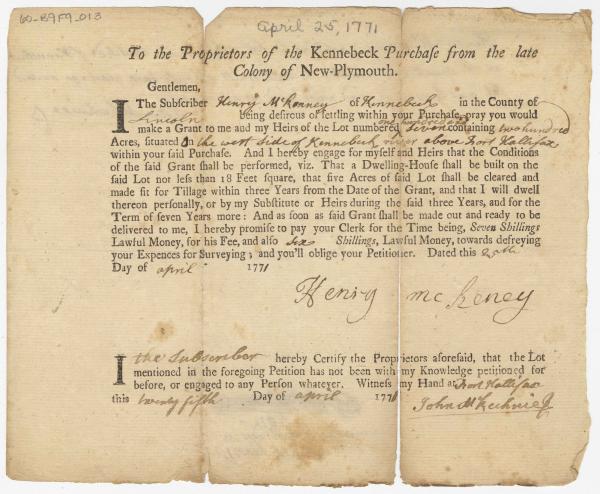 60-B9F9_013
April 25, 1771
To the Proprietors of the Kennebeck Purchaſe from the late
Colony of New-Plymouth.
Gentlemen,
I The Subſcriber Henry McKenney of Kennebeck in the County of
Lincoln being deſirous of ſettling within your Purchaſe, pray you would
one hundred and
make a Grant to me and my Heirs of the Lot numbered Seven containing two hundred
Acres, ſituated On the west Side of Kennebeck river above Fort Hallifax
within your ſaid Purchaſe. And I hereby engage for myſelf and Heirs that the Conditions
of the ſaid Grant ſhall be performed, viz. That a Dwelling-Houſe ſhall be built on the
ſaid Lot not leſs than 18 Feet ſquare, that five Acres of ſaid Lot ſhall be cleared and
made fit for Tillage within three Years from the Date of the Grant, and that I will dwell
thereon perſonally, or by my Subſtitute or Heirs during the ſaid three Years, and for the
Term of ſeven Years more: And as ſoon as ſaid Grant ſhall be made out and ready to be
delivered to me, I hereby promiſe to pay your Clerk for the Time being, Seven Shillings
Lawful Money, for his Fee, and alſo Six Shillings, Lawful Money, towards defreying
your Expences for Surveying; and you'll oblige your Petitioner. Dated this 25th
Day of april 1771
Henry mcKeney
I the Subscriber hereby Certify the Proprietors aforeſaid, that the Lot
mentioned in the foregoing Petition has not been with my Knowledge petitioned for
before, or engaged to any Perſon whatever. Witneſs my Hand at Fort Hallifax
this twenty fifth Day of april 1771
John McKechnie